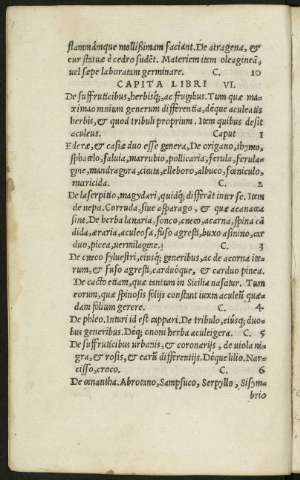 flammámque mollißimam faciant. De atragena, &
cur statuæ è cedro sudét. Materiem item oleagineā,
vel sæpe laboratam germinare. C. 10
CAPITA LIBRI VI.
De suffruticibus, herbisq́;, ac frugibus. Tum quæ ma-
xima omnium generum differentia, déque aculeatis
herbis, & quod tribuli proprium. Item quibus desit
aculeus. Caput 1
Ederæ, & casiæ duo esse genera, De origano, thymo,
sphacelo, saluia, marrubio, pollicaria, ferula, ferula-
gine, mandragora, cicuta, elleboro, albuco, fœniculo,
muricida. C. 2
De laserpitio, magydari, quidq́; differāt inter se. Item
de uepa. Corruda, siue asparago, & quæ acanacea
sint. De herba lanaria, sonco, cneco, acarna, spina cā
dida, æraria, aculeosa, fuso agresti, buxo asinino, car
duo, picea, uermilagine. C. 3
De cneco syluestri, eiusq́; generibus, ac de acorna ite-
rum, & fuso agresti, carduóque, & carduo pinea.
De cacto etiam, quæ tantum in Sicilia nascitur. Tum
eorum, quæ spinosis folijs constant iuxta aculeū quæ-
dam folium gerere. C. 4.
De phleo. Inturi id est cappari. De tribulo, eiúsq; duo-
bus generibus. Déq; ononi herba aculeigera. C. 5
De suffruticibus urbanis, & coronarijs, de uiola ni-
gra, & rosis, & earū differentijs. Déque lilio. Nar-
cisso, croco. C. 6
De œnantha. Abrotano, Sampsuco, Serpyllo, Sisym-
brio